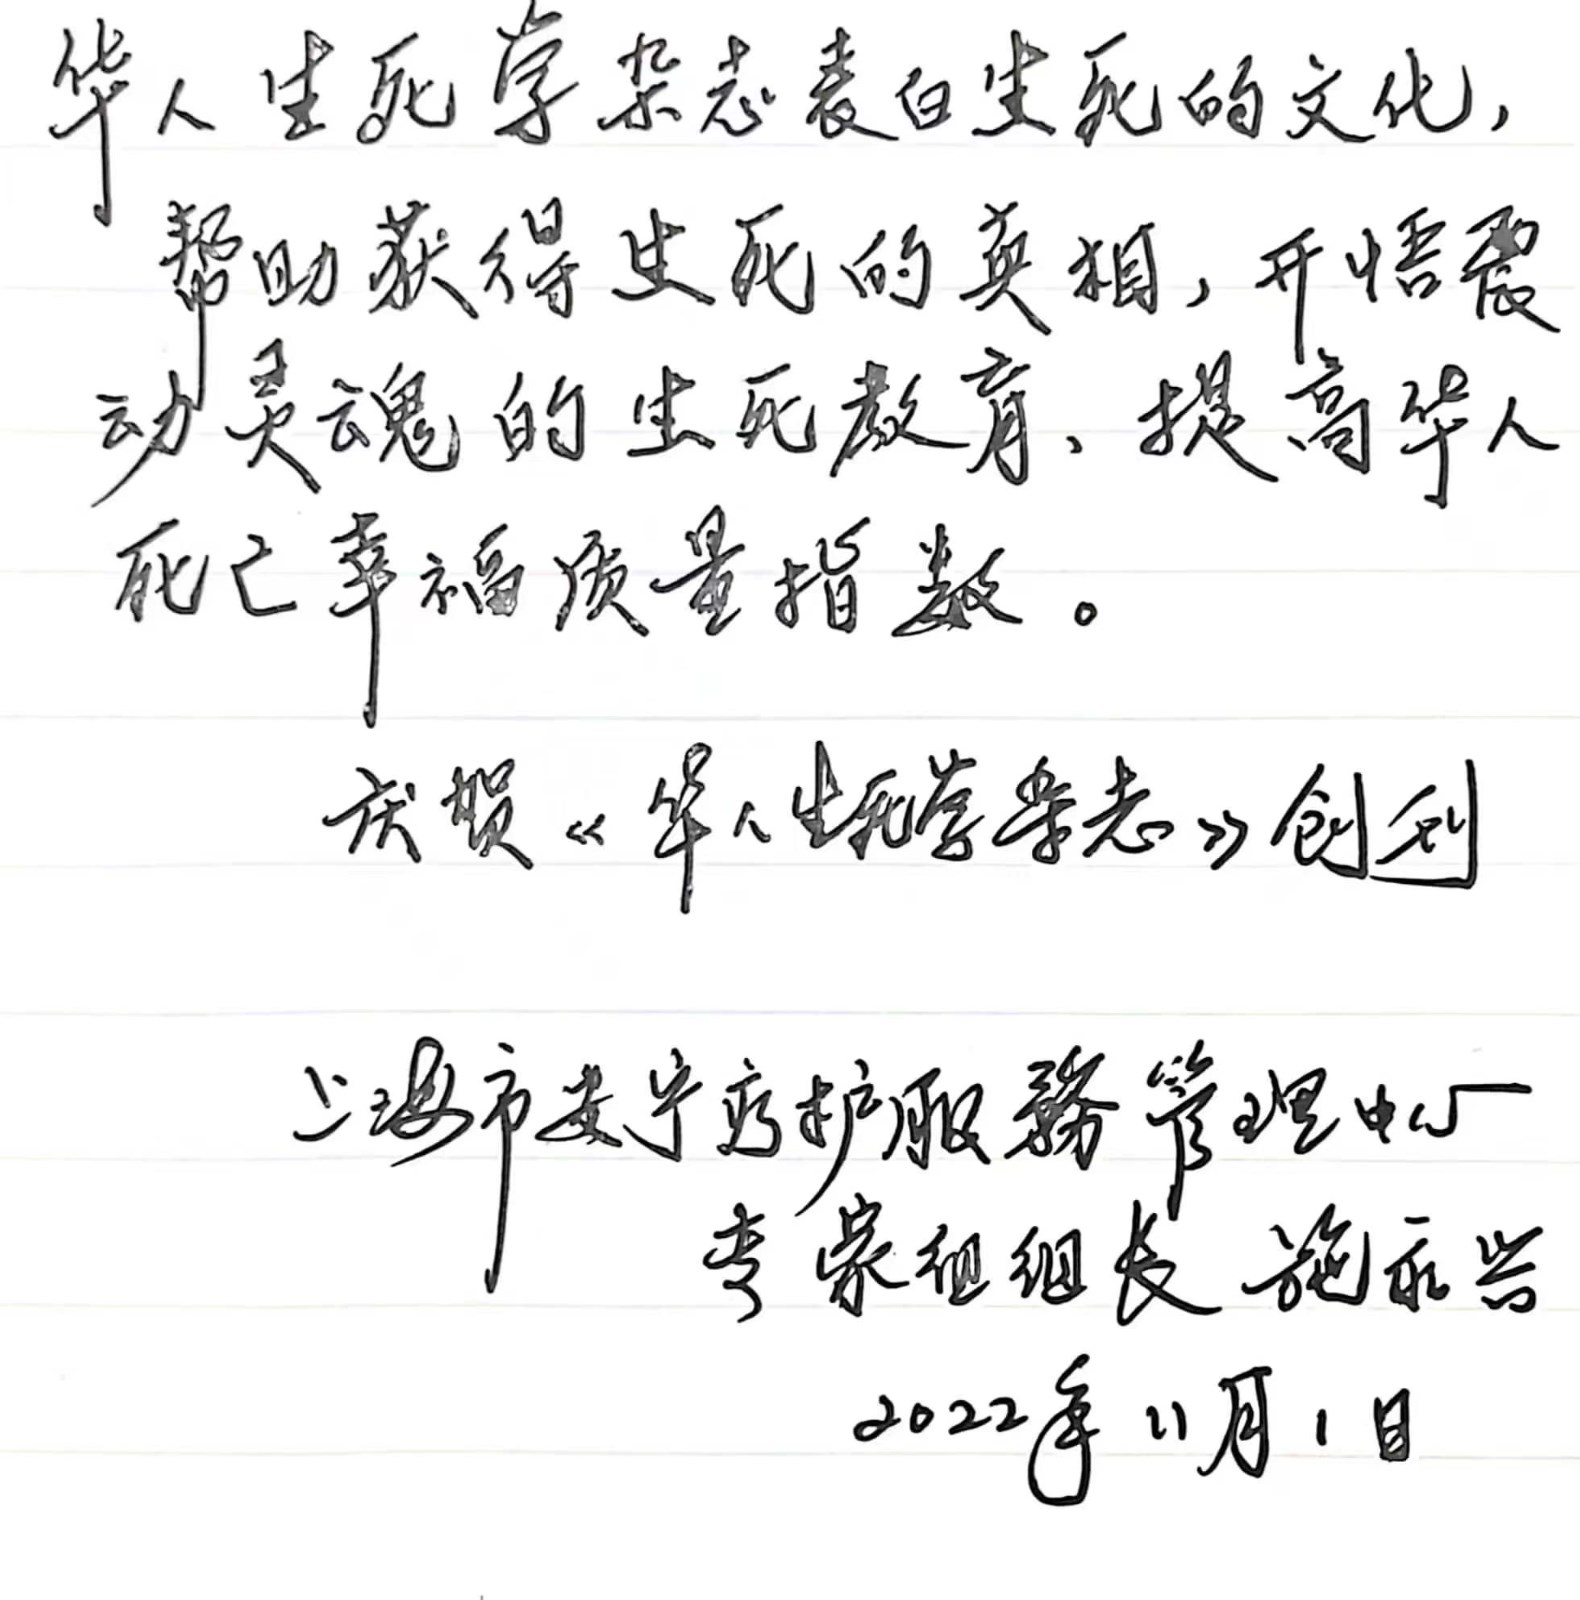 华人生死学杂志表白生死的文化，
帮助获得生死的真相，开悟震
动灵魂的生死教育、提高华人
死亡幸福质量指数。
庆贺《华人生死学杂志》创刊
上海市安宁疗护服務管理中心
专家组组长 施永兴
2022年11月1日